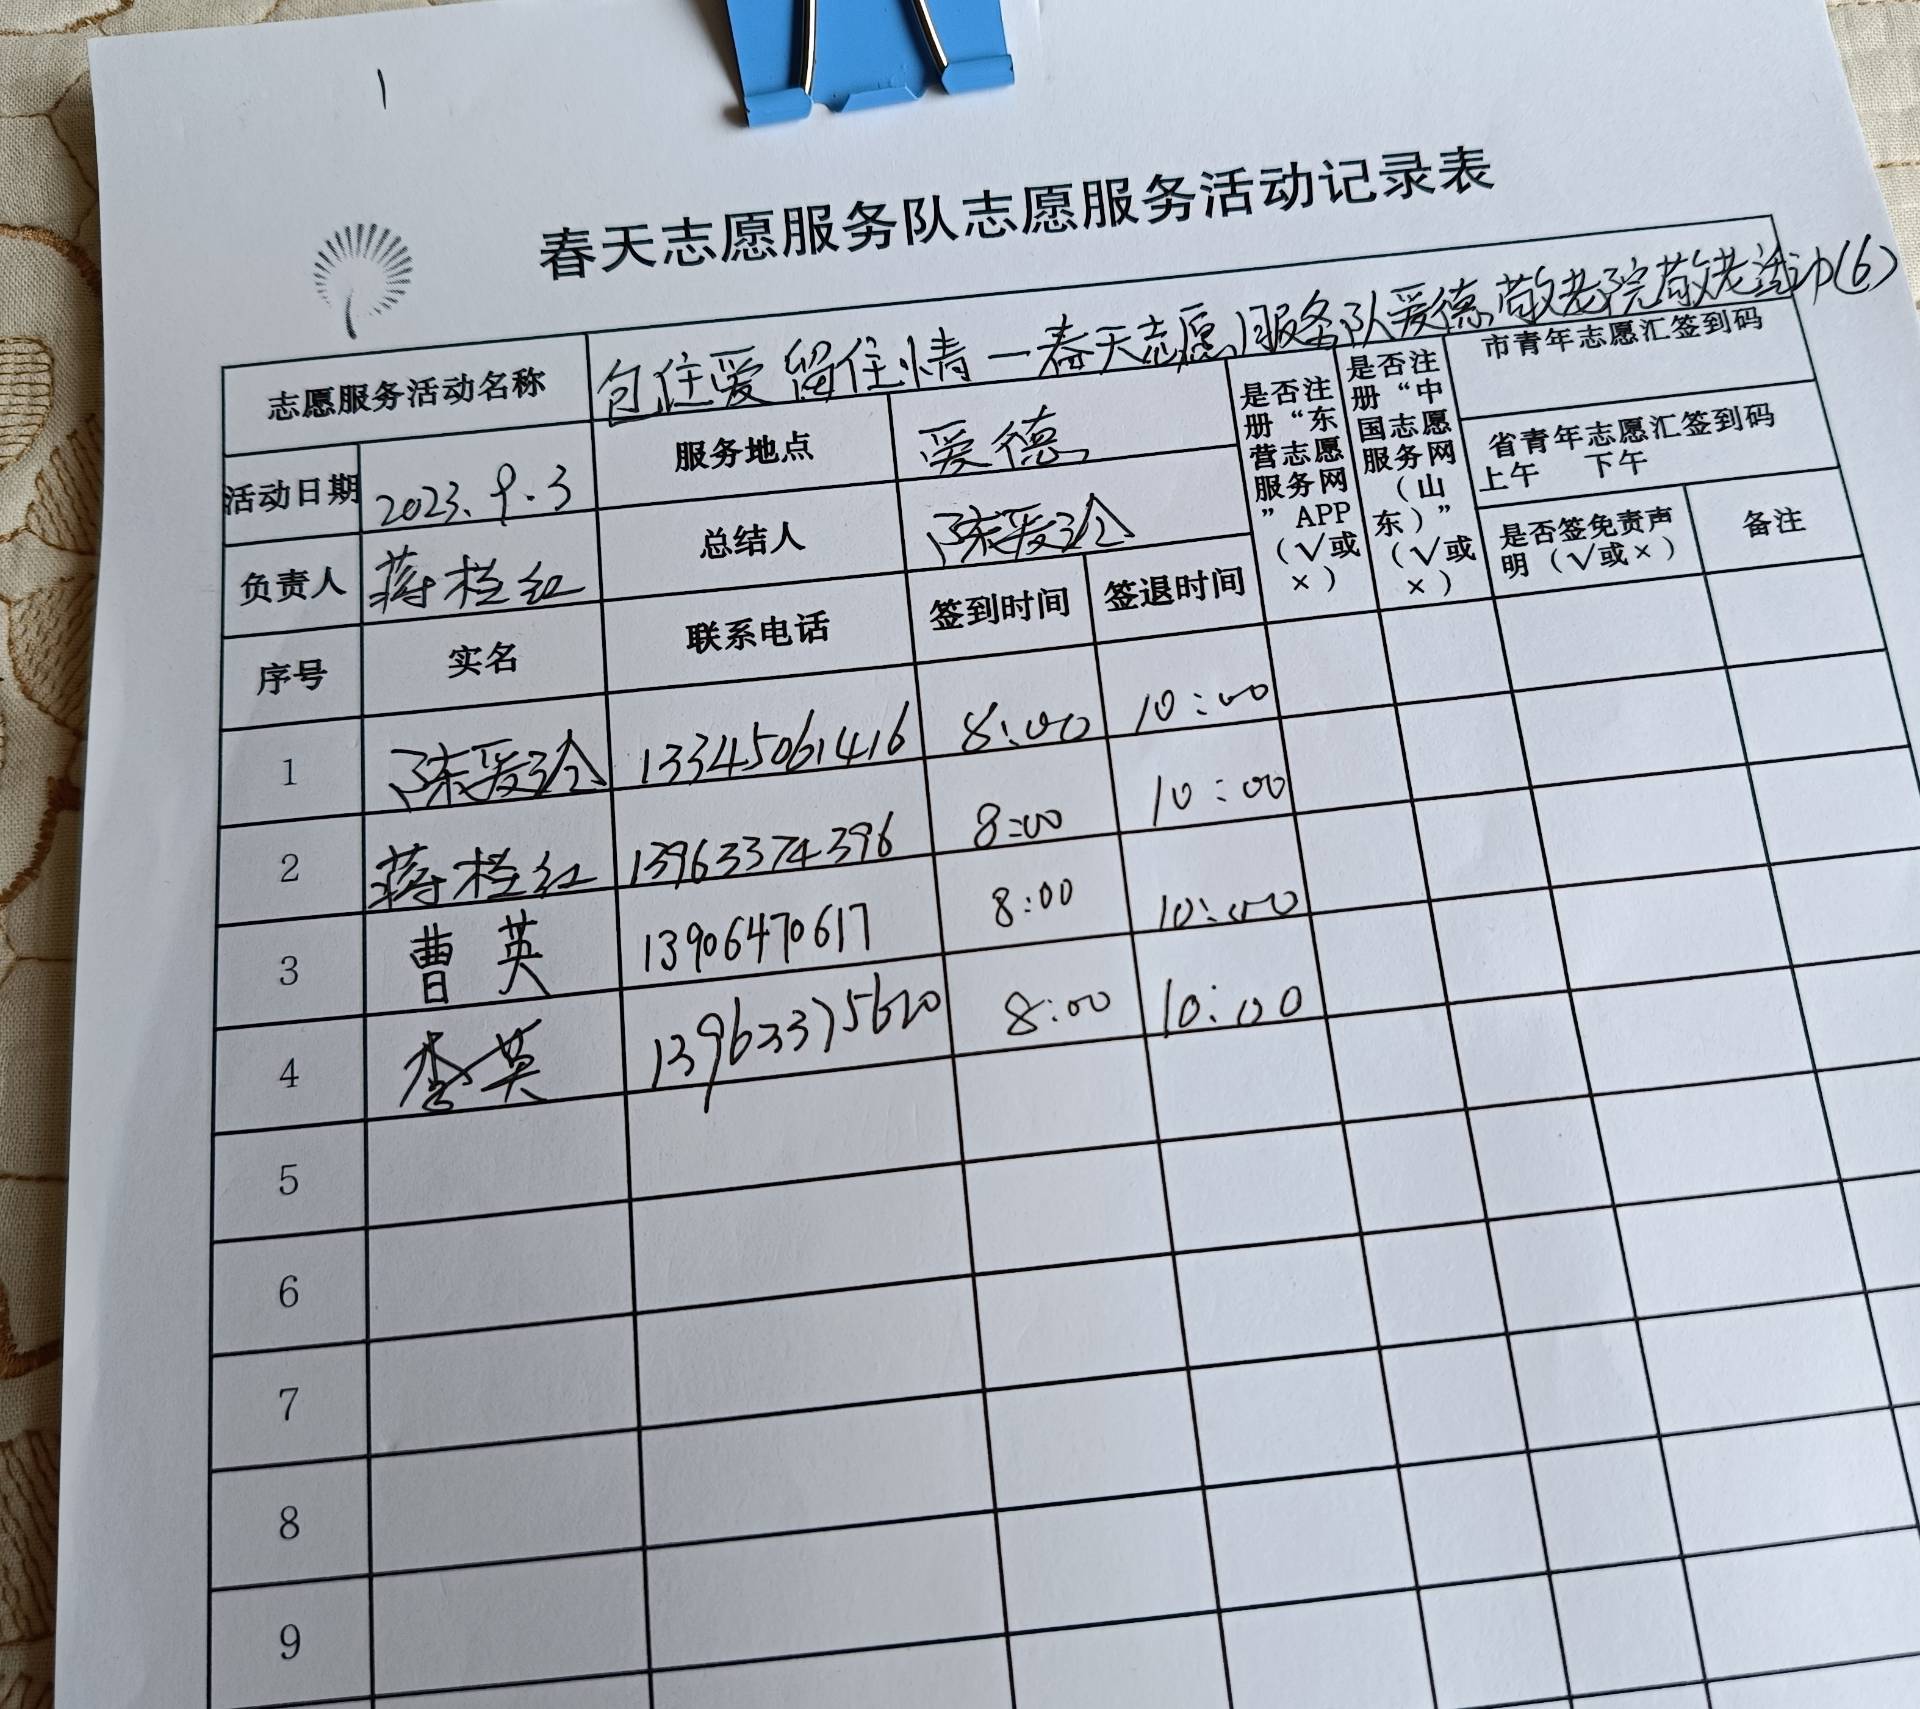 1
春天志愿服务队志愿服务活动记录表
志愿服务活动名称 包住爱 留住情—春天志愿服务队爱德敬老院敬老活动(6)
活动日期 2023.9.3 服务地点 爱德
负责人 蒋桂红 总结人 陈爱玲
是否注册“东营志愿服务网”APP（√或×）
是否注册“中国志愿服务网（山东）”（√或×）
市青年志愿汇签到码
省青年志愿汇签到码
上午 下午
是否签免责声明（√或×） 备注
序号 实名 联系电话 签到时间 签退时间
1 陈爱玲 13345061416 8:00 10:00
2 蒋桂红 13963374396 8:00 10:00
3 曹英 13906470617 8:00 10:00
4 李英 13963375620 8:00 10:00
5
6
7
8
9